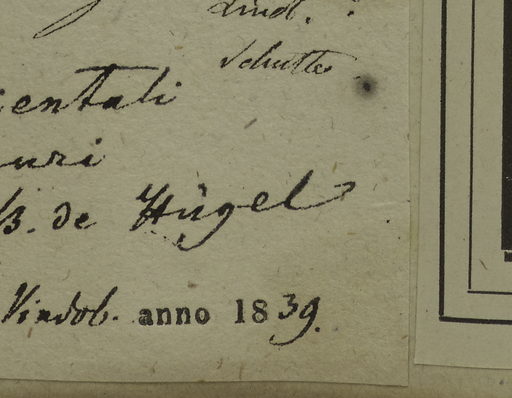 Lindl.
Schultes
ientali
uri
B. de Hügel
Vindob. anno 1839.